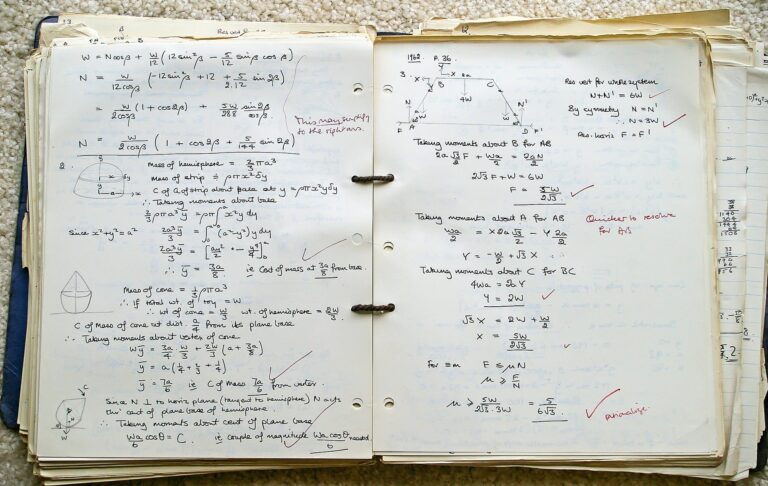 W = N cosβ + W/12 (12 sin²β − 5/12 sinβ cosβ)
N = W/12cosβ (−12 sin²β + 12 + 5/2.12 sin2β)
= W/2cosβ (1 + cos2β) + 5W/288 sin2β/cosβ
This may simplify
to the right ans.
N = W/2cosβ (1 + cos2β + 5/144 sin2β)
2.
Mass of hemisphere = 2/3 ρπa³
Mass of strip = ρπx²δy
C of G of strip about base at y = ρπx²yδy
∴ Taking moments about base
2/3 ρπa³ȳ = ρπ∫x²y dy
Since x²+y² = a²
2a³ȳ/3 = ∫(a²−y²)y dy
2a³ȳ/3 = [ay²/2 − y⁴/4]
∴ ȳ = 3a/8 ie C of mass at 3a/8 from base.
Mass of cone = 1/3 ρπa³
∴ If total wt. of toy = W
∴ wt of cone = W/3 wt. of hemisphere = 2W/3
C of Mass of cone at dist. a/4 from its plane base
∴ Taking moments about vertex of cone
Wȳ = 3a/4 . W/3 + 2W/3 (a + 3a/8)
ȳ = a(1/4 + 2/3 + 1/4)
ȳ = 7a/6 ie C of mass 7a/6 from vertex.
Since N ⊥ to horiz plane (tangent to hemisphere) N acts
thro' cent of plane base of hemisphere.
∴ Taking moments about cent of plane base
Wa/6 cosθ = C. ie couple of magnitude Wa cosθ/6 needed
1962 P. 36.
3.
Res vert for whole system
N+N' = 6W
By symmetry N = N'
∴ N = 3W
Res. horiz F = F'
Taking moments about B for AB
2a√3/2 F + Wa/2 = 2aN/2
2√3F + W = 6W
F = 5W/2√3
Taking moments about A for AB
Quicker to resolve
for this
Wa/2 = X 2a√3/2 − Y 2a/2
Y = −W/2 + √3 X
Taking moments about C for BC
4Wa = 2aY
Y = 2W
√3 X = 2W + W/2
X = 5W/2√3
For ≡m F ≤ μN
μ ≥ F/N
μ ≥ 5W/2√3.3W = 5/6√3